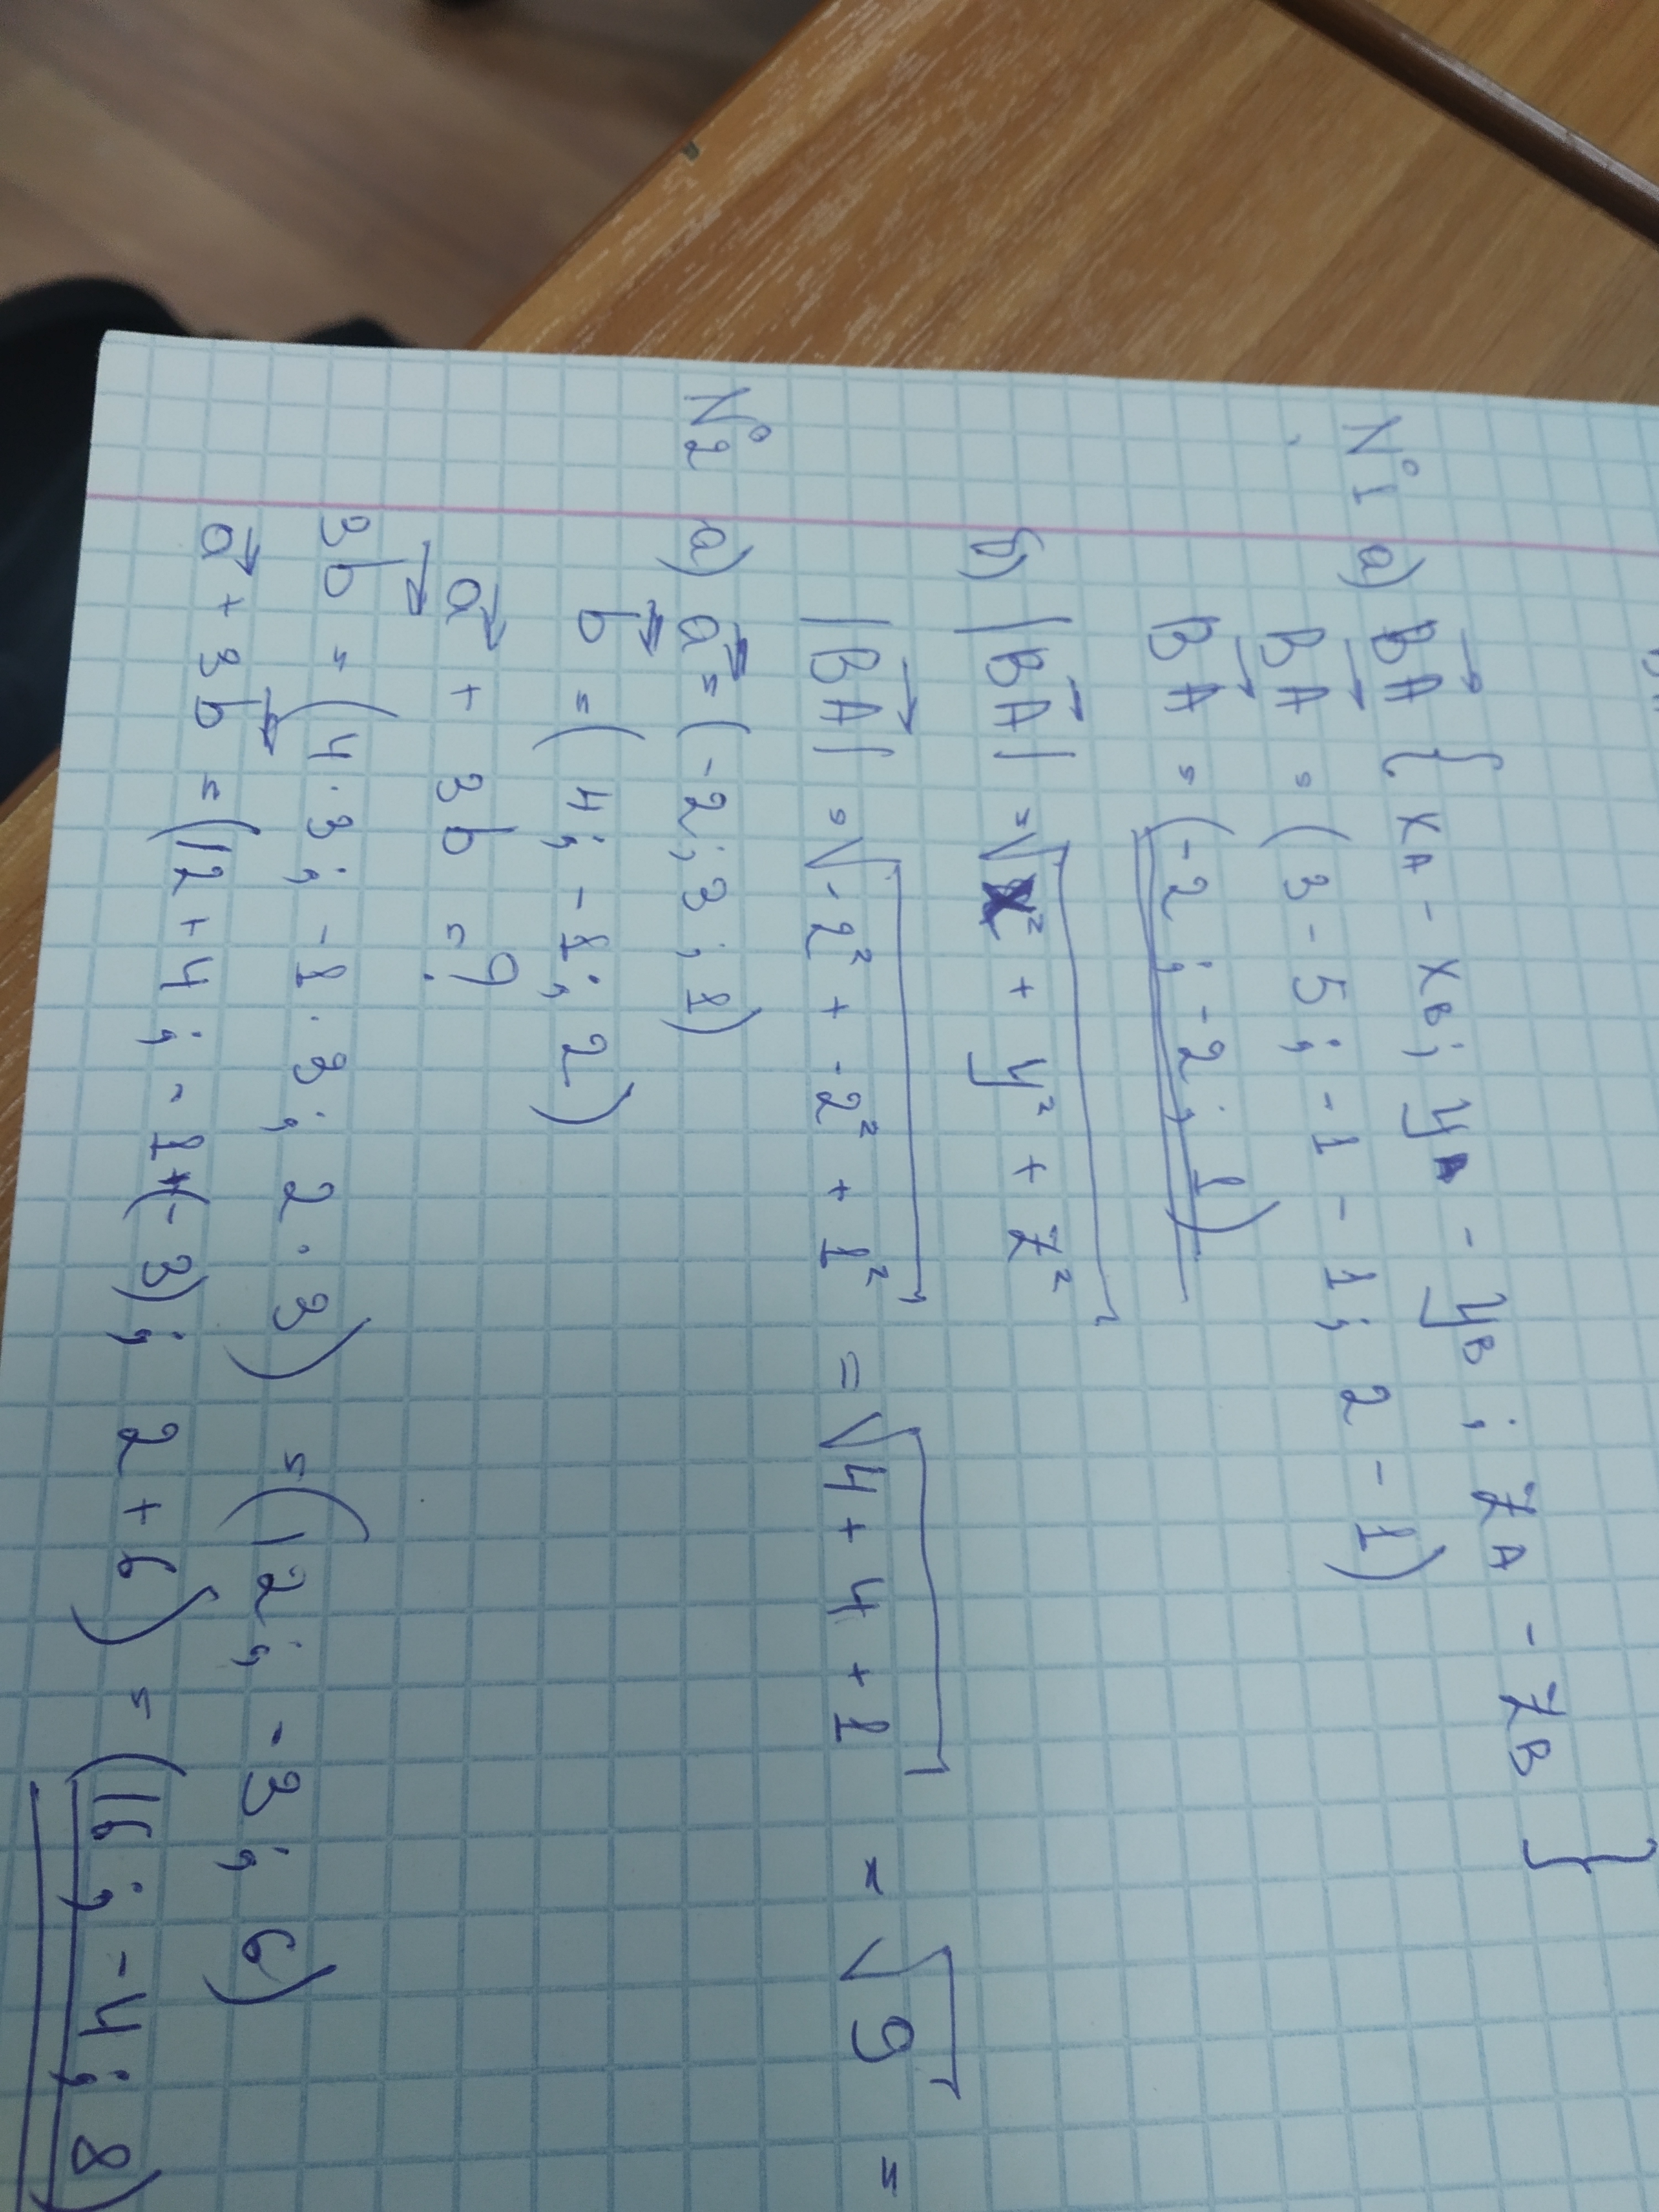 №1 а) BA→ { xA - xB; yA - yB; zA - zB }
BA→ = (3 - 5; -1 - 1; 2 - 1)
BA→ = (-2; -2; 1)
б) |BA→| = √x² + y² + z²
|BA→| = √-2² + -2² + 1² = √4 + 4 + 1 = √9 =
№2 а) a→ = (-2; 3; 1)
b→ = (4; -1; 2)
a→ + 3b→ = ?
3b = (4·3; -1·3; 2·3) = (12; -3; 6)
a→ + 3b→ = (12+4; -1+(-3); 2+6) = (16; -4; 8)